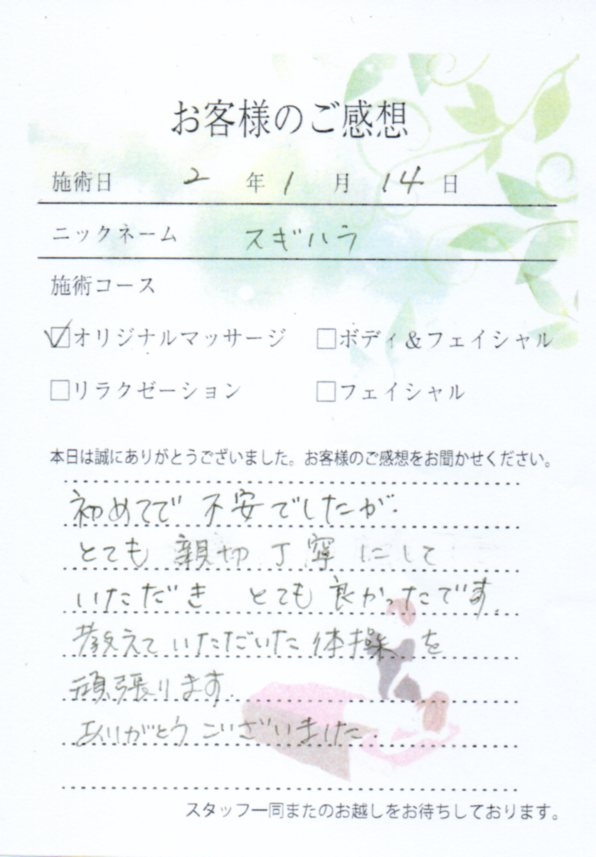 お客様のご感想
施術日 2 年 1 月 14 日
ニックネーム スギハラ
施術コース
☑オリジナルマッサージ □ボディ&フェイシャル
□リラクゼーション □フェイシャル
本日は誠にありがとうございました。お客様のご感想をお聞かせください。
初めてで 不安でしたが
とても 親切 丁寧 にして
いただき とても 良かったです。
教えて いただいた 体操 を
頑張ります。
ありがとう ございました
スタッフ一同またのお越しをお待ちしております。